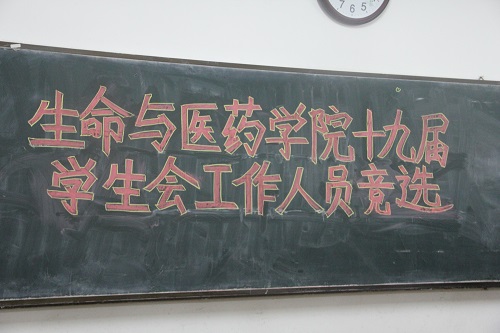 7 6 5
生命与医药学院十九届
学生会工作人员竞选